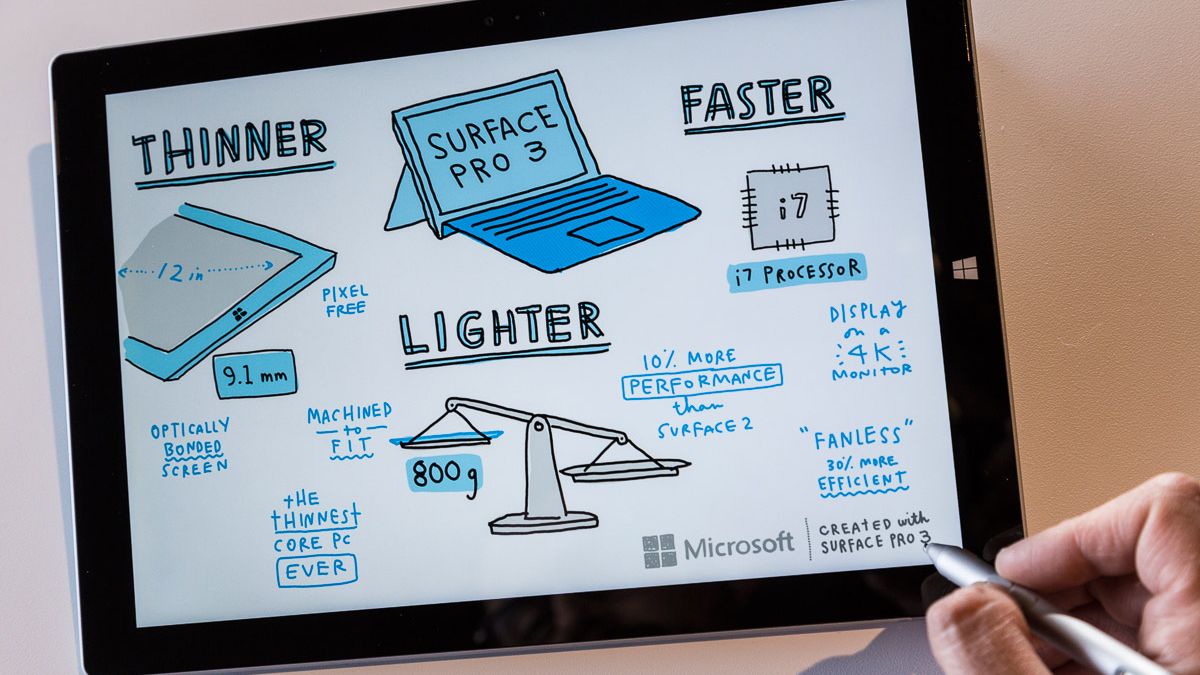 THINNER
12 in
PIXEL
FREE
9.1 mm
OPTICALLY
BONDED
SCREEN
MACHINED
to
FIT
tHE
tHINNESt
CORE PC
EVER
SURFACE
PRO 3
LIGHTER
800g
10% MORE
PERFORMANCE
than
SURFACE 2
FASTER
i7
i7 PROCESSOR
DISPLAY
on a
4K
MONITOR
"FANLESS"
30% MORE
EFFICIENT
Microsoft
CREATED with
SURFACE PRO 3